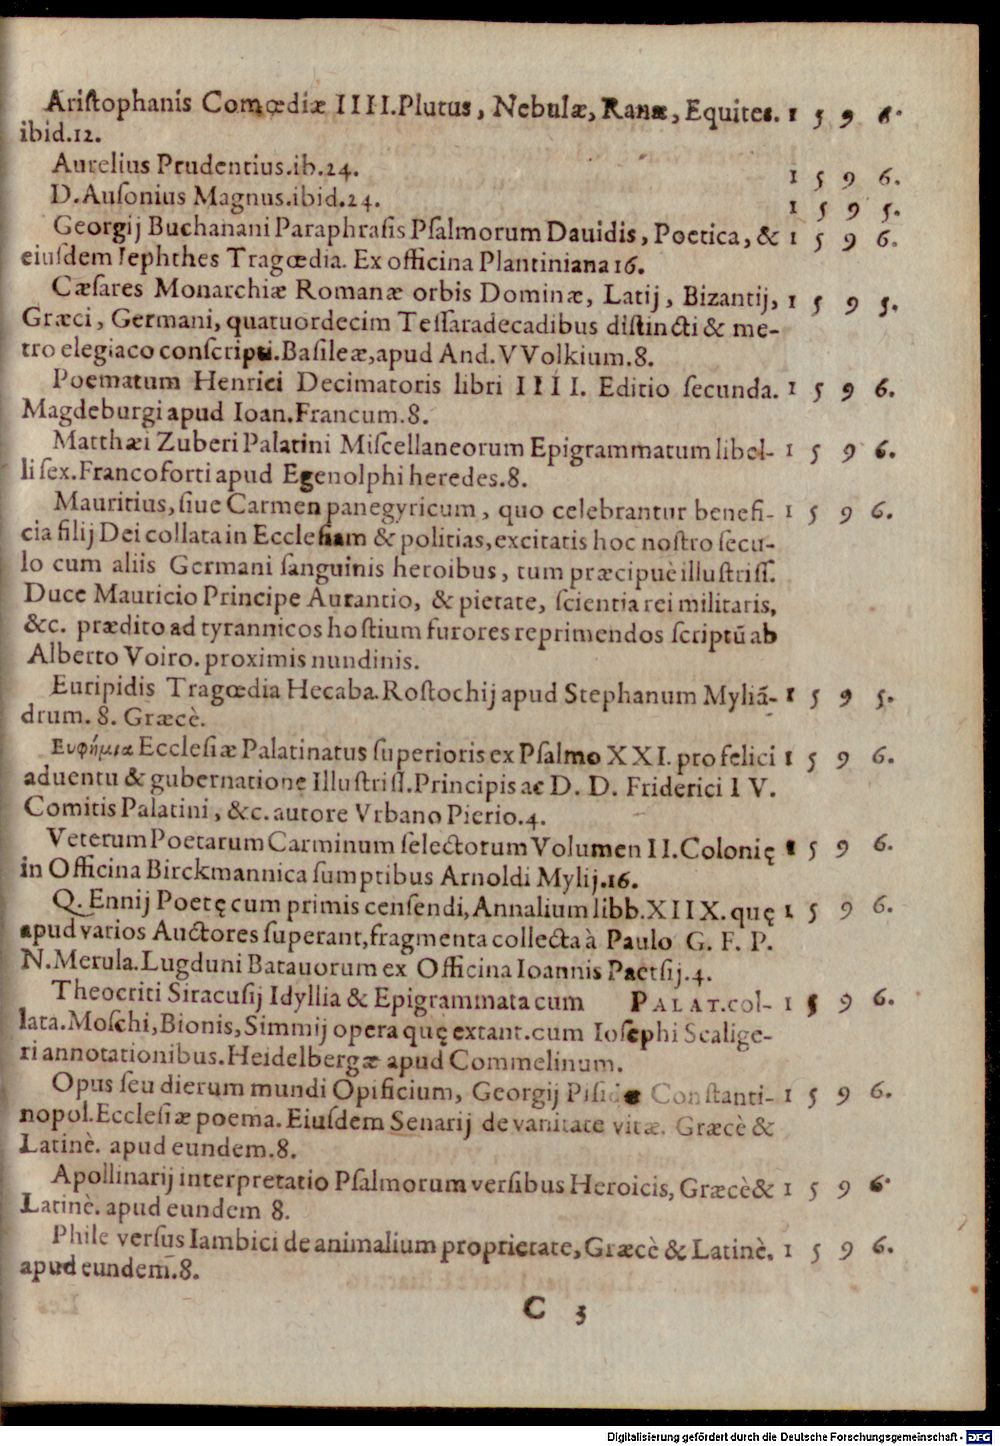 Ariſtophanis Comœdiæ IIII.Plutus, Nebulæ, Ranæ, Equites. 1 5 9 6.
ibid.12.
Aurelius Prudentius.ib.24. 1 5 9 6.
D.Auſonius Magnus.ibid.24. 1 5 9 5.
Georgij Buchanani Paraphraſis Pſalmorum Dauidis, Poetica, & 1 5 9 6.
eiuſdem Iephthes Tragœdia. Ex officina Plantiniana 16.
Cæſares Monarchiæ Romanæ orbis Dominæ, Latij, Bizantij, 1 5 9 5.
Græci, Germani, quatuordecim Teſſaradecadibus diſtincti & me-
tro elegiaco conſcripti.Baſileæ, apud And. VVolkium.8.
Poematum Henrici Decimatoris libri IIII. Editio ſecunda. 1 5 9 6.
Magdeburgi apud Ioan.Francum.8.
Matthæi Zuberi Palatini Miſcellaneorum Epigrammatum libel- 1 5 9 6.
li ſex.Francoforti apud Egenolphi heredes.8.
Mauritius, ſiue Carmen panegyricum, quo celebrantur benefi- 1 5 9 6.
cia filij Dei collata in Eccleſiam & politias, excitatis hoc noſtro ſecu-
lo cum aliis Germani ſanguinis heroibus, tum præcipuè illuſtriſſ.
Duce Mauricio Principe Aurantio, & pietate, ſcientia rei militaris,
&c. prædito ad tyrannicos hoſtium furores reprimendos ſcriptū ab
Alberto Voiro. proximis nundinis.
Euripidis Tragœdia Hecaba.Roſtochij apud Stephanum Myliā- 1 5 9 5.
drum. 8. Græcè.
Ευφήμια Eccleſiæ Palatinatus ſuperioris ex Pſalmo XXI. pro felici 1 5 9 6.
aduentu & gubernatione Illuſtriſſ.Principis ac D. D. Friderici IV.
Comitis Palatini, &c. autore Vrbano Pierio.4.
Veterum Poetarum Carminum ſelectorum Volumen II.Colonię 1 5 9 6.
in Officina Birckmannica ſumptibus Arnoldi Mylij.16.
Q. Ennij Poetę cum primis cenſendi, Annalium libb.XIIX. quę 1 5 9 6.
apud varios Auctores ſuperant, fragmenta collecta à Paulo G. F. P.
N.Merula.Lugduni Batauorum ex Officina Ioannis Paetſij.4.
Theocriti Siracuſij Idyllia & Epigrammata cum PALAT.col- 1 5 9 6.
lata.Moſchi, Bionis, Simmij opera quę extant.cum Ioſephi Scalige-
ri annotationibus.Heidelbergæ apud Commelinum.
Opus ſeu dierum mundi Opificium, Georgij Piſidæ Conſtanti- 1 5 9 6.
nopol.Eccleſiæ poema. Eiuſdem Senarij de vanitate vitæ. Græcè &
Latinè. apud eundem.8.
Apollinarij interpretatio Pſalmorum verſibus Heroicis, Græcè & 1 5 9 6.
Latinè. apud eundem 8.
Phile verſus Iambici de animalium proprietate, Græcè & Latinè. 1 5 9 6.
apud eundem.8.
C 3
Digitalisierung gefördert durch die Deutsche Forschungsgemeinschaft - DFG